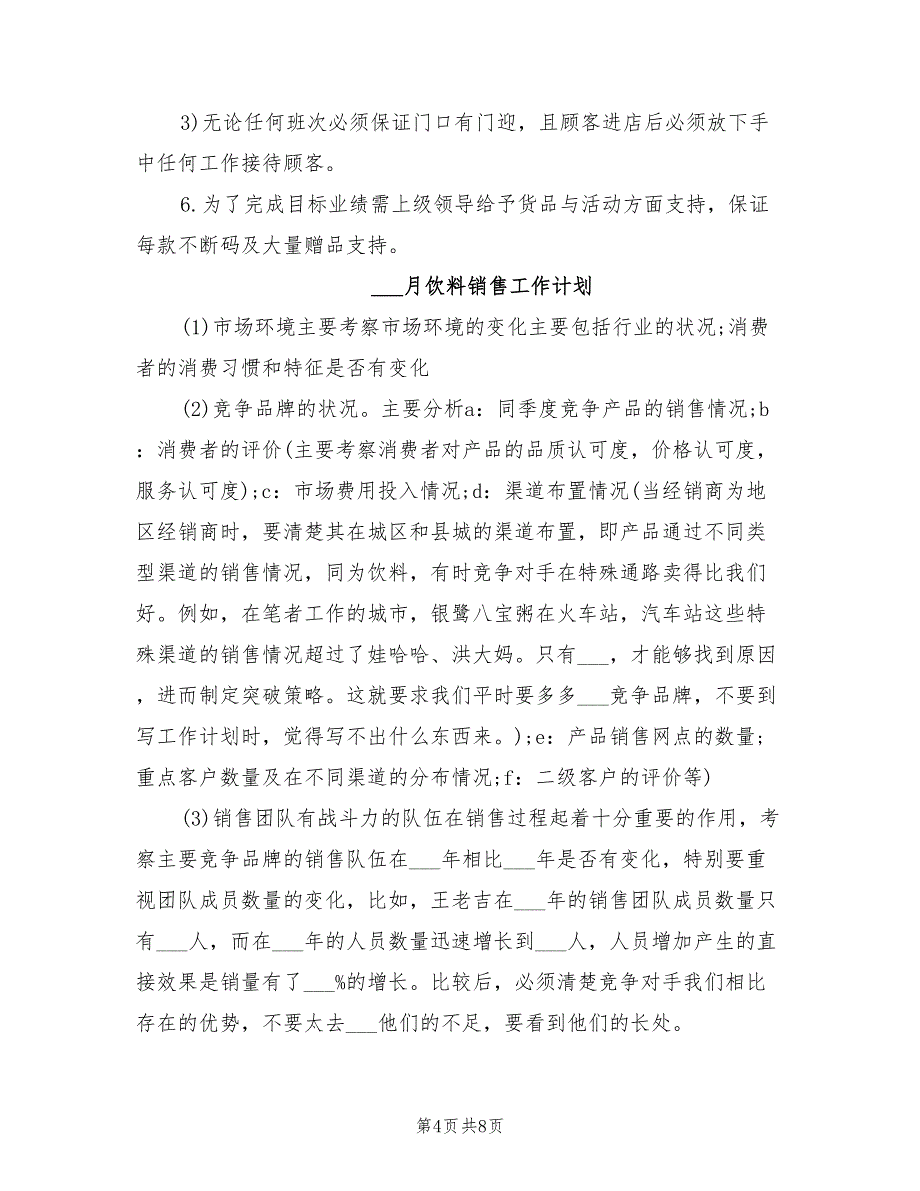 3)无论任何班次必须保证门口有门迎，且顾客进店后必须放下手
中任何工作接待顾客。
6.为了完成目标业绩需上级领导给予货品与活动方面支持，保证
每款不断码及大量赠品支持。
___月饮料销售工作计划
(1)市场环境主要考察市场环境的变化主要包括行业的状况;消费
者的消费习惯和特征是否有变化
(2)竞争品牌的状况。主要分析a：同季度竞争产品的销售情况;b
：消费者的评价(主要考察消费者对产品的品质认可度，价格认可度，
服务认可度);c：市场费用投入情况;d：渠道布置情况(当经销商为地
区经销商时，要清楚其在城区和县城的渠道布置，即产品通过不同类
型渠道的销售情况，同为饮料，有时竞争对手在特殊通路卖得比我们
好。例如，在笔者工作的城市，银鹭八宝粥在火车站，汽车站这些特
殊渠道的销售情况超过了娃哈哈、洪大妈。只有___，才能够找到原因
，进而制定突破策略。这就要求我们平时要多多___竞争品牌，不要到
写工作计划时，觉得写不出什么东西来。);e：产品销售网点的数量;
重点客户数量及在不同渠道的分布情况;f：二级客户的评价等)
(3)销售团队有战斗力的队伍在销售过程起着十分重要的作用，考
察主要竞争品牌的销售队伍在___年相比___年是否有变化，特别要重
视团队成员数量的变化，比如，王老吉在___年的销售团队成员数量只
有___人，而在___年的人员数量迅速增长到___人，人员增加产生的直
接效果是销量有了___%的增长。比较后，必须清楚竞争对手我们相比
存在的优势，不要太去___他们的不足，要看到他们的长处。
第4页 共8页